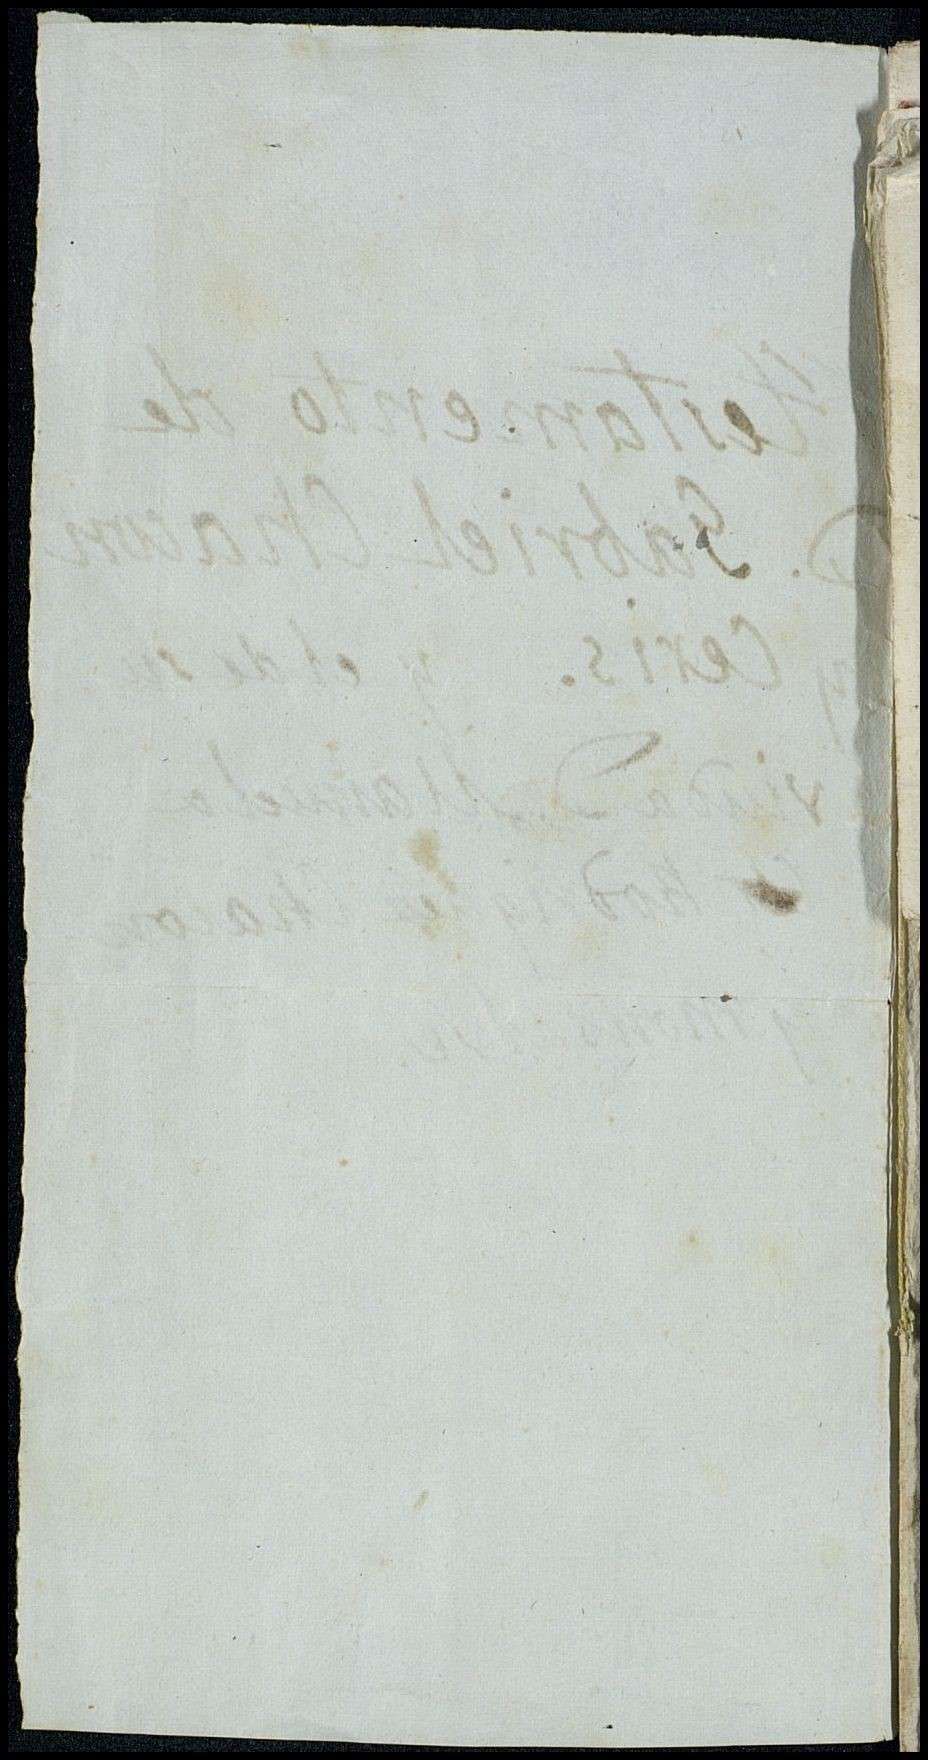 Testamento de
D. Gabriel Chacon
y Ceris. y el de su
viuda D. Manuela
Rodriguez Chacon
y